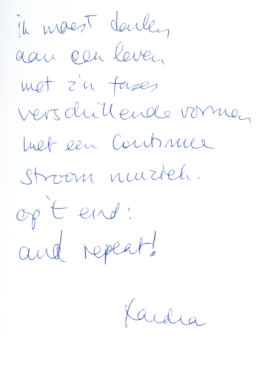 ik moest denken
aan een leven
met z'n fases
verschillende vormen
met een continue
stroom muziek.
op 't eind:
and repeat!
Xandra